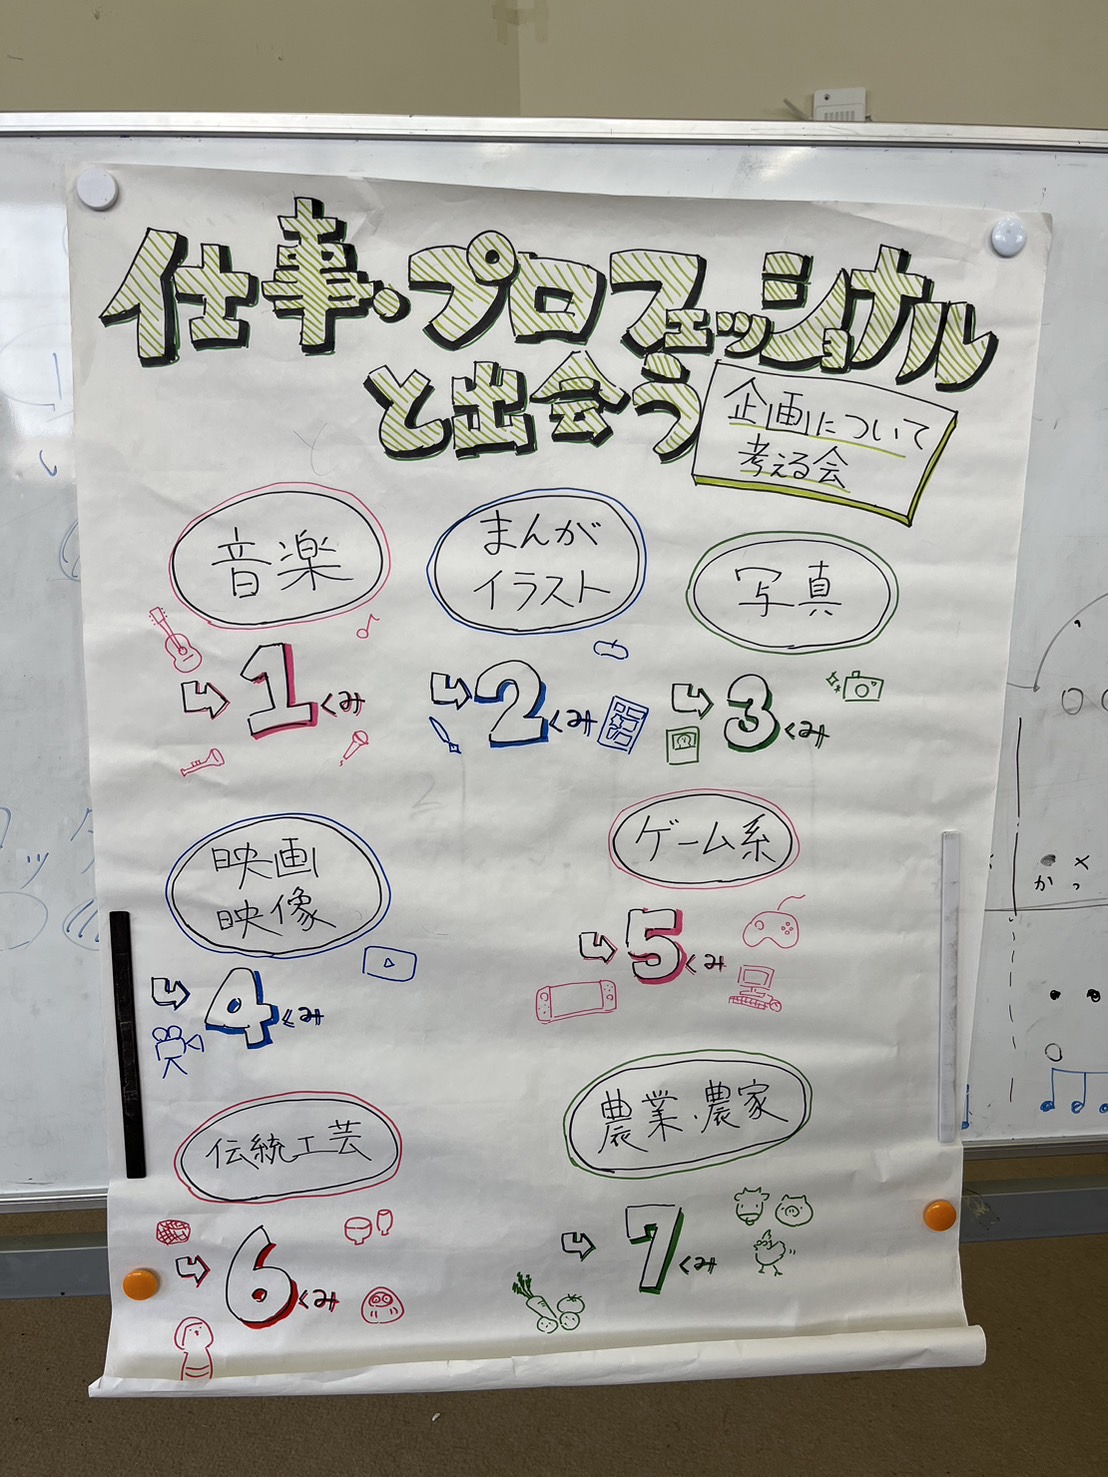 仕事・プロフェッショナル
と出会う
企画について
考える会
音楽
1くみ
まんが
イラスト
2くみ
写真
3くみ
映画
映像
4くみ
ゲーム系
5くみ
伝統工芸
6くみ
農業・農家
7くみ
かっ